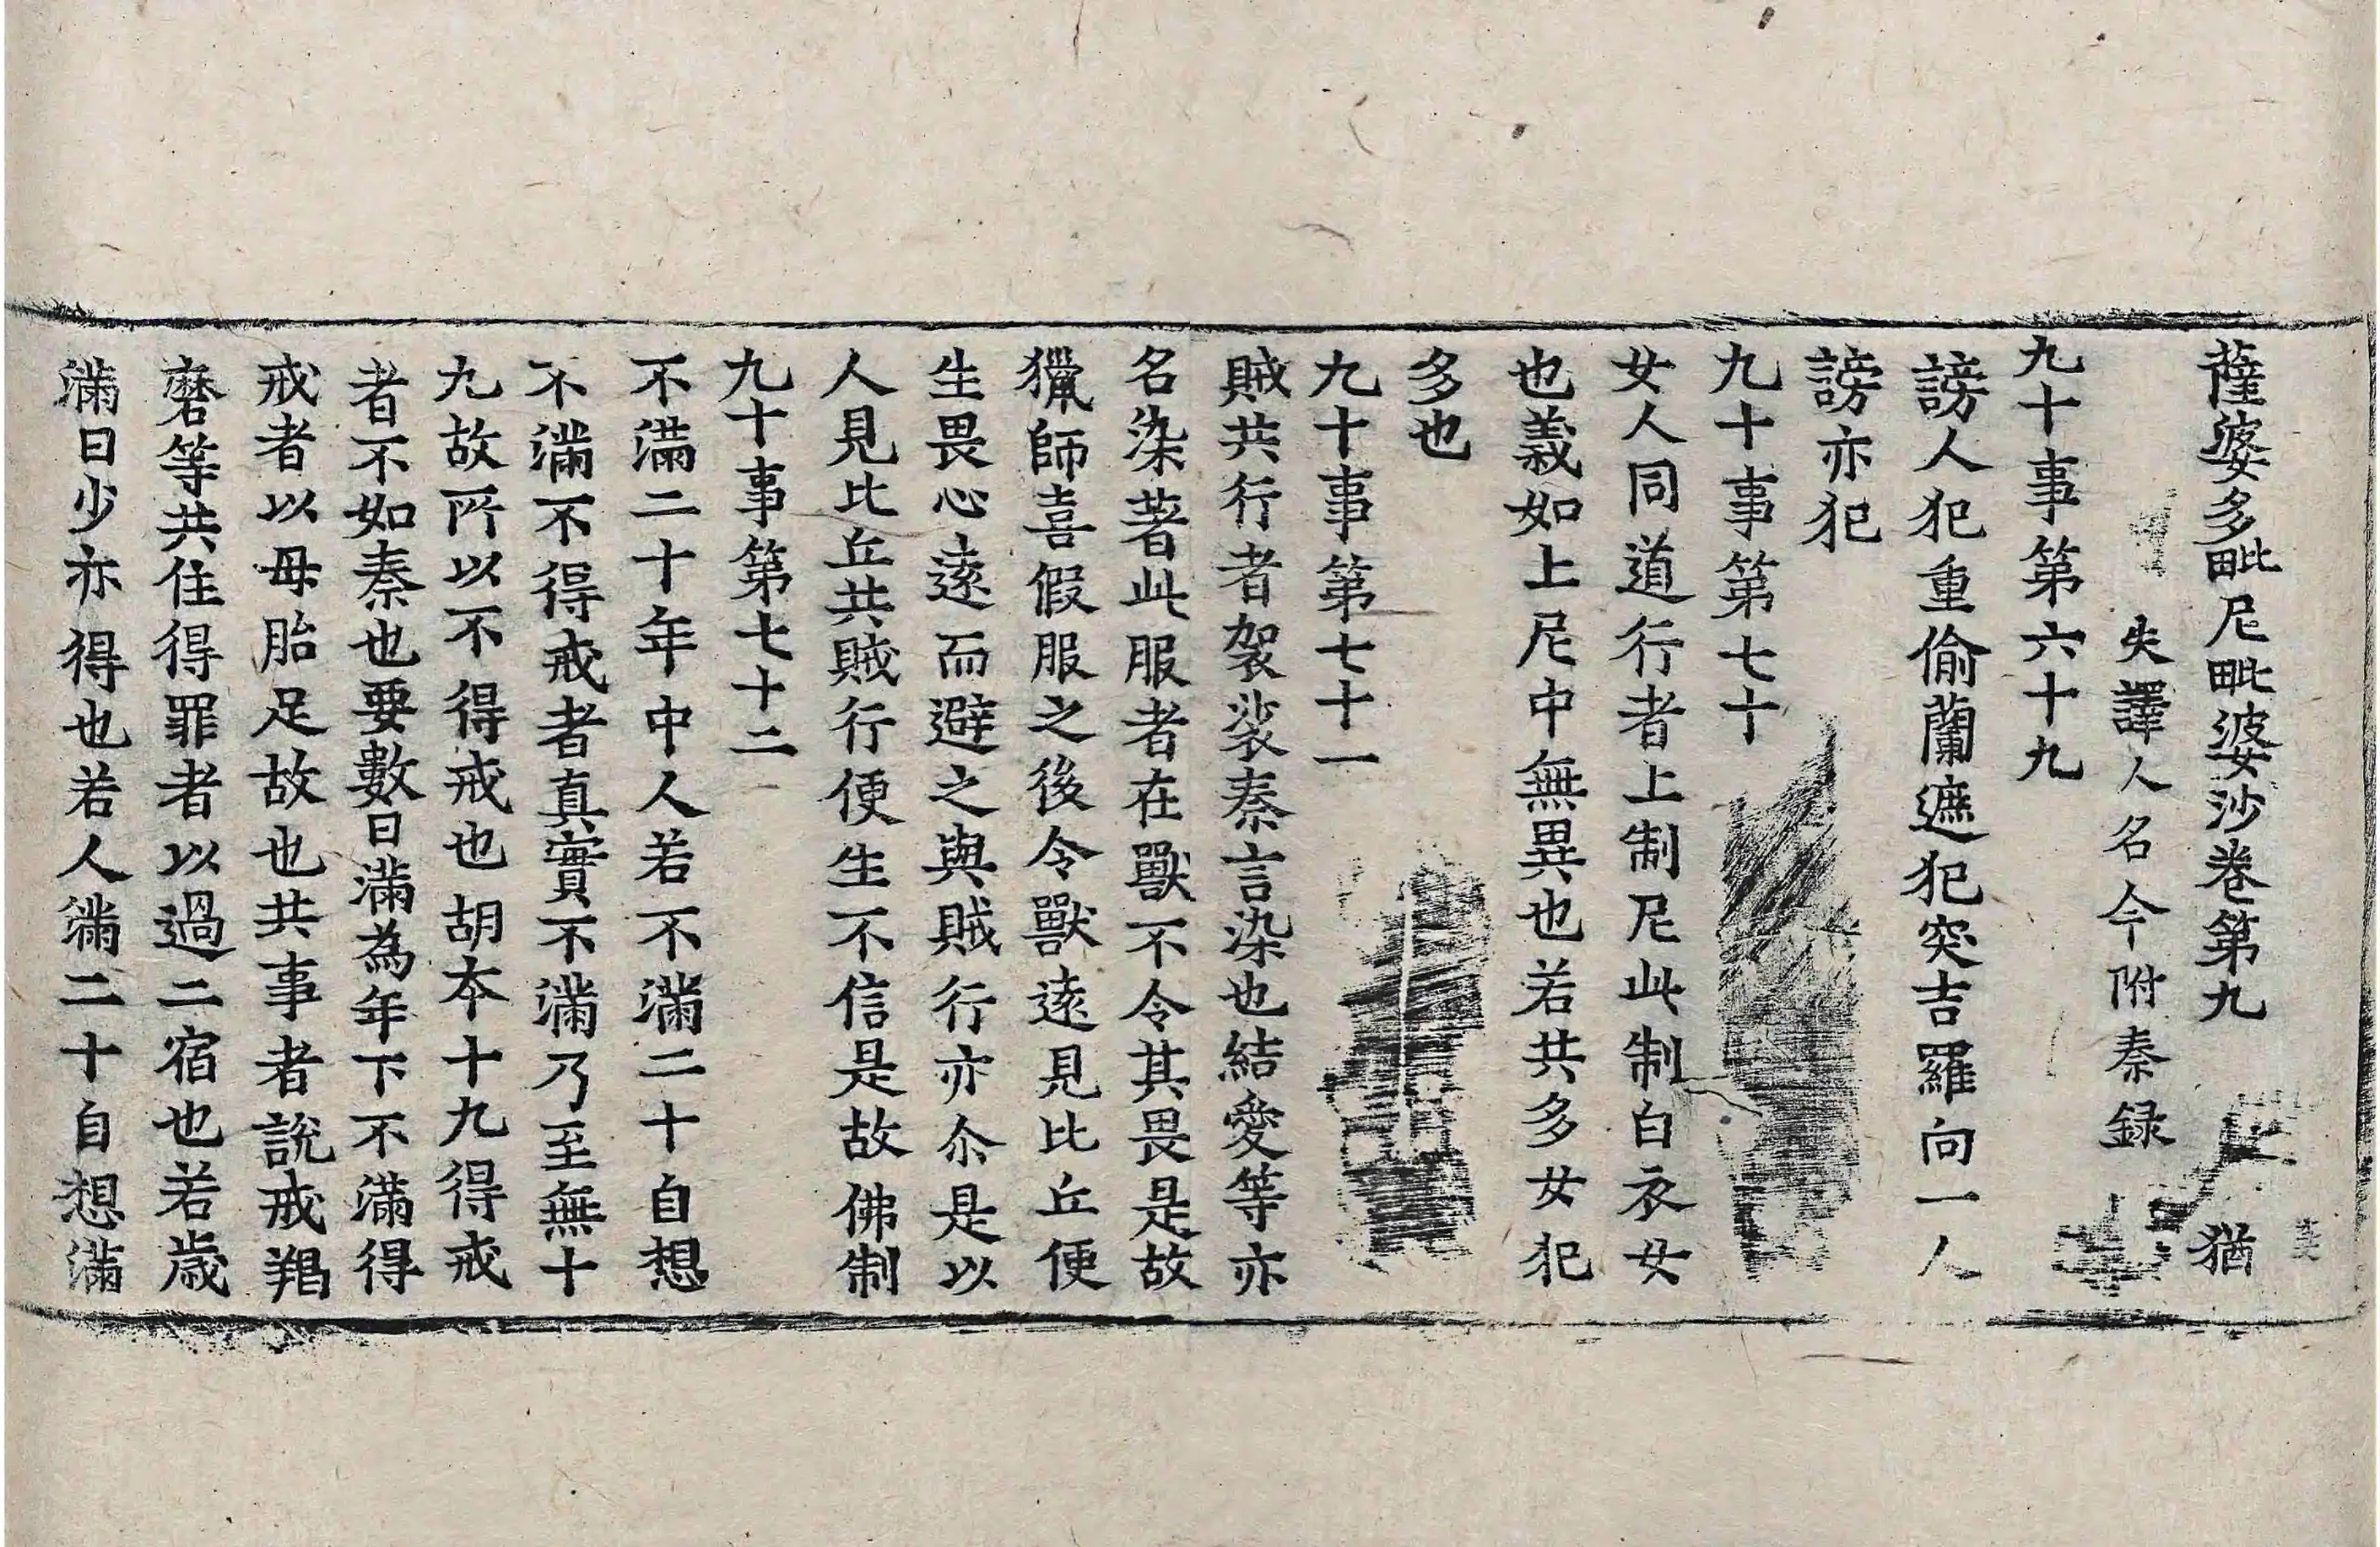 薩婆多毗尼毗婆沙卷第九　猶
失譯人名今附秦録
九十事第六十九
謗人犯重偷蘭遮犯突吉羅向一人
謗亦犯
九十事第七十
女人同道行者上制尼此制白衣女
也義如上尼中無異也若共多女犯
多也
九十事第七十一
賊共行者袈裟秦言染也結愛等亦
名染著此服者在獸不令其畏是故
獵師喜假服之後令獸遠見比丘便
生畏心遠而避之與賊行亦尒是以
人見比丘共賊行便生不信是故佛制
九十事第七十二
不滿二十年中人若不滿二十自想
不滿不得戒者真實不滿乃至無十
九故所以不得戒也胡本十九得戒
者不如秦也要數日滿為年下不滿得
戒者以母胎足故也共事者說戒羯
磨等共住得罪者以過二宿也若歲
滿日少亦得也若人滿二十自想滿